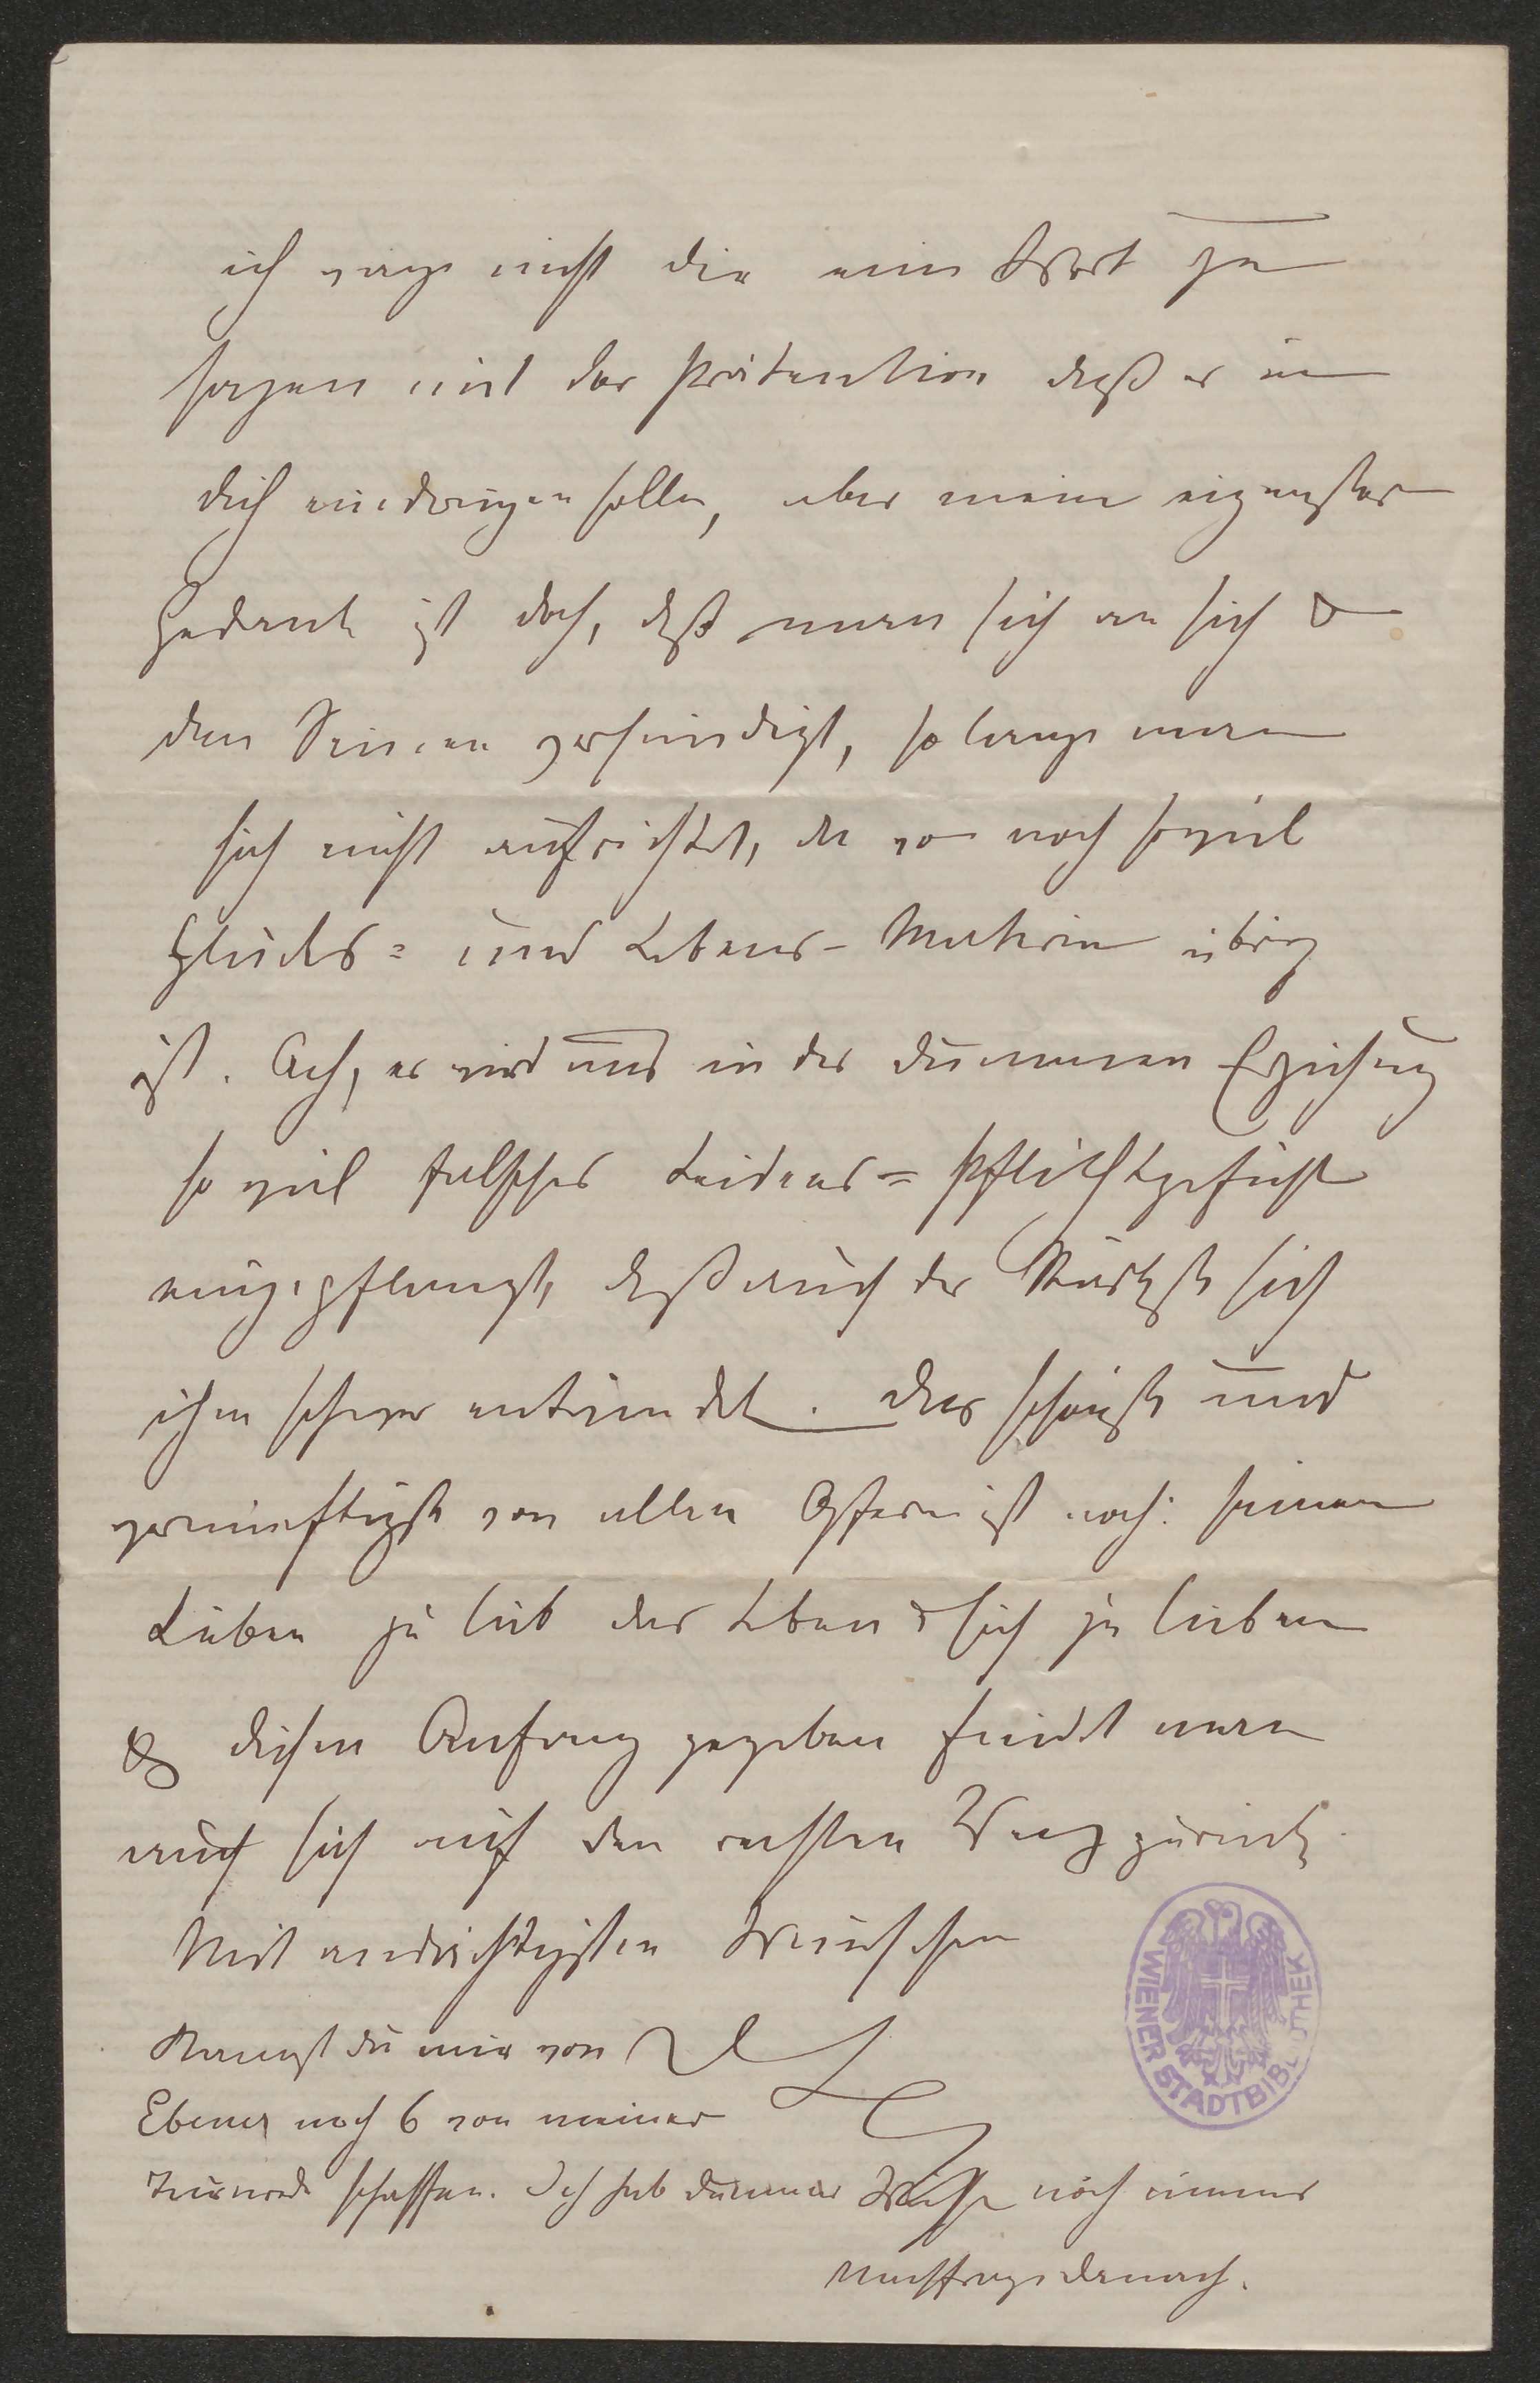 ich wage nicht dir ein Wort zu
sagen mit der Prätention daß es in
dich eindringen solle, aber mein eigenster
Gedank ist doch, daß man sich an sich &
den Seinen versündigt, so lange man
sich nicht aufrichtet, da wo noch soviel
Glücks= und Lebens-Materie übrig
ist. Ach, es wird uns in der dummen Erziehung
so viel falsches Leidens=Pflichtgefühl
eingepflanzt, daß auch der Stärkste sich
ihm schwer entwindet. Das schönste und
vernünftigste von allen Opfern ist noch: seinen
Lieben zu lieb das Leben & sich zu lieben
& diesen Anfang gegeben findet man
auch sich auf den rechten Weg zurück.
Mit andächtigsten Wünschen
Kannst du mir von
Ebner noch 6 von meiner
schaffen. Ich hab dummer Weise noch immer
Nachfrage danach.
WIENER STADTBIBLIOTHEK